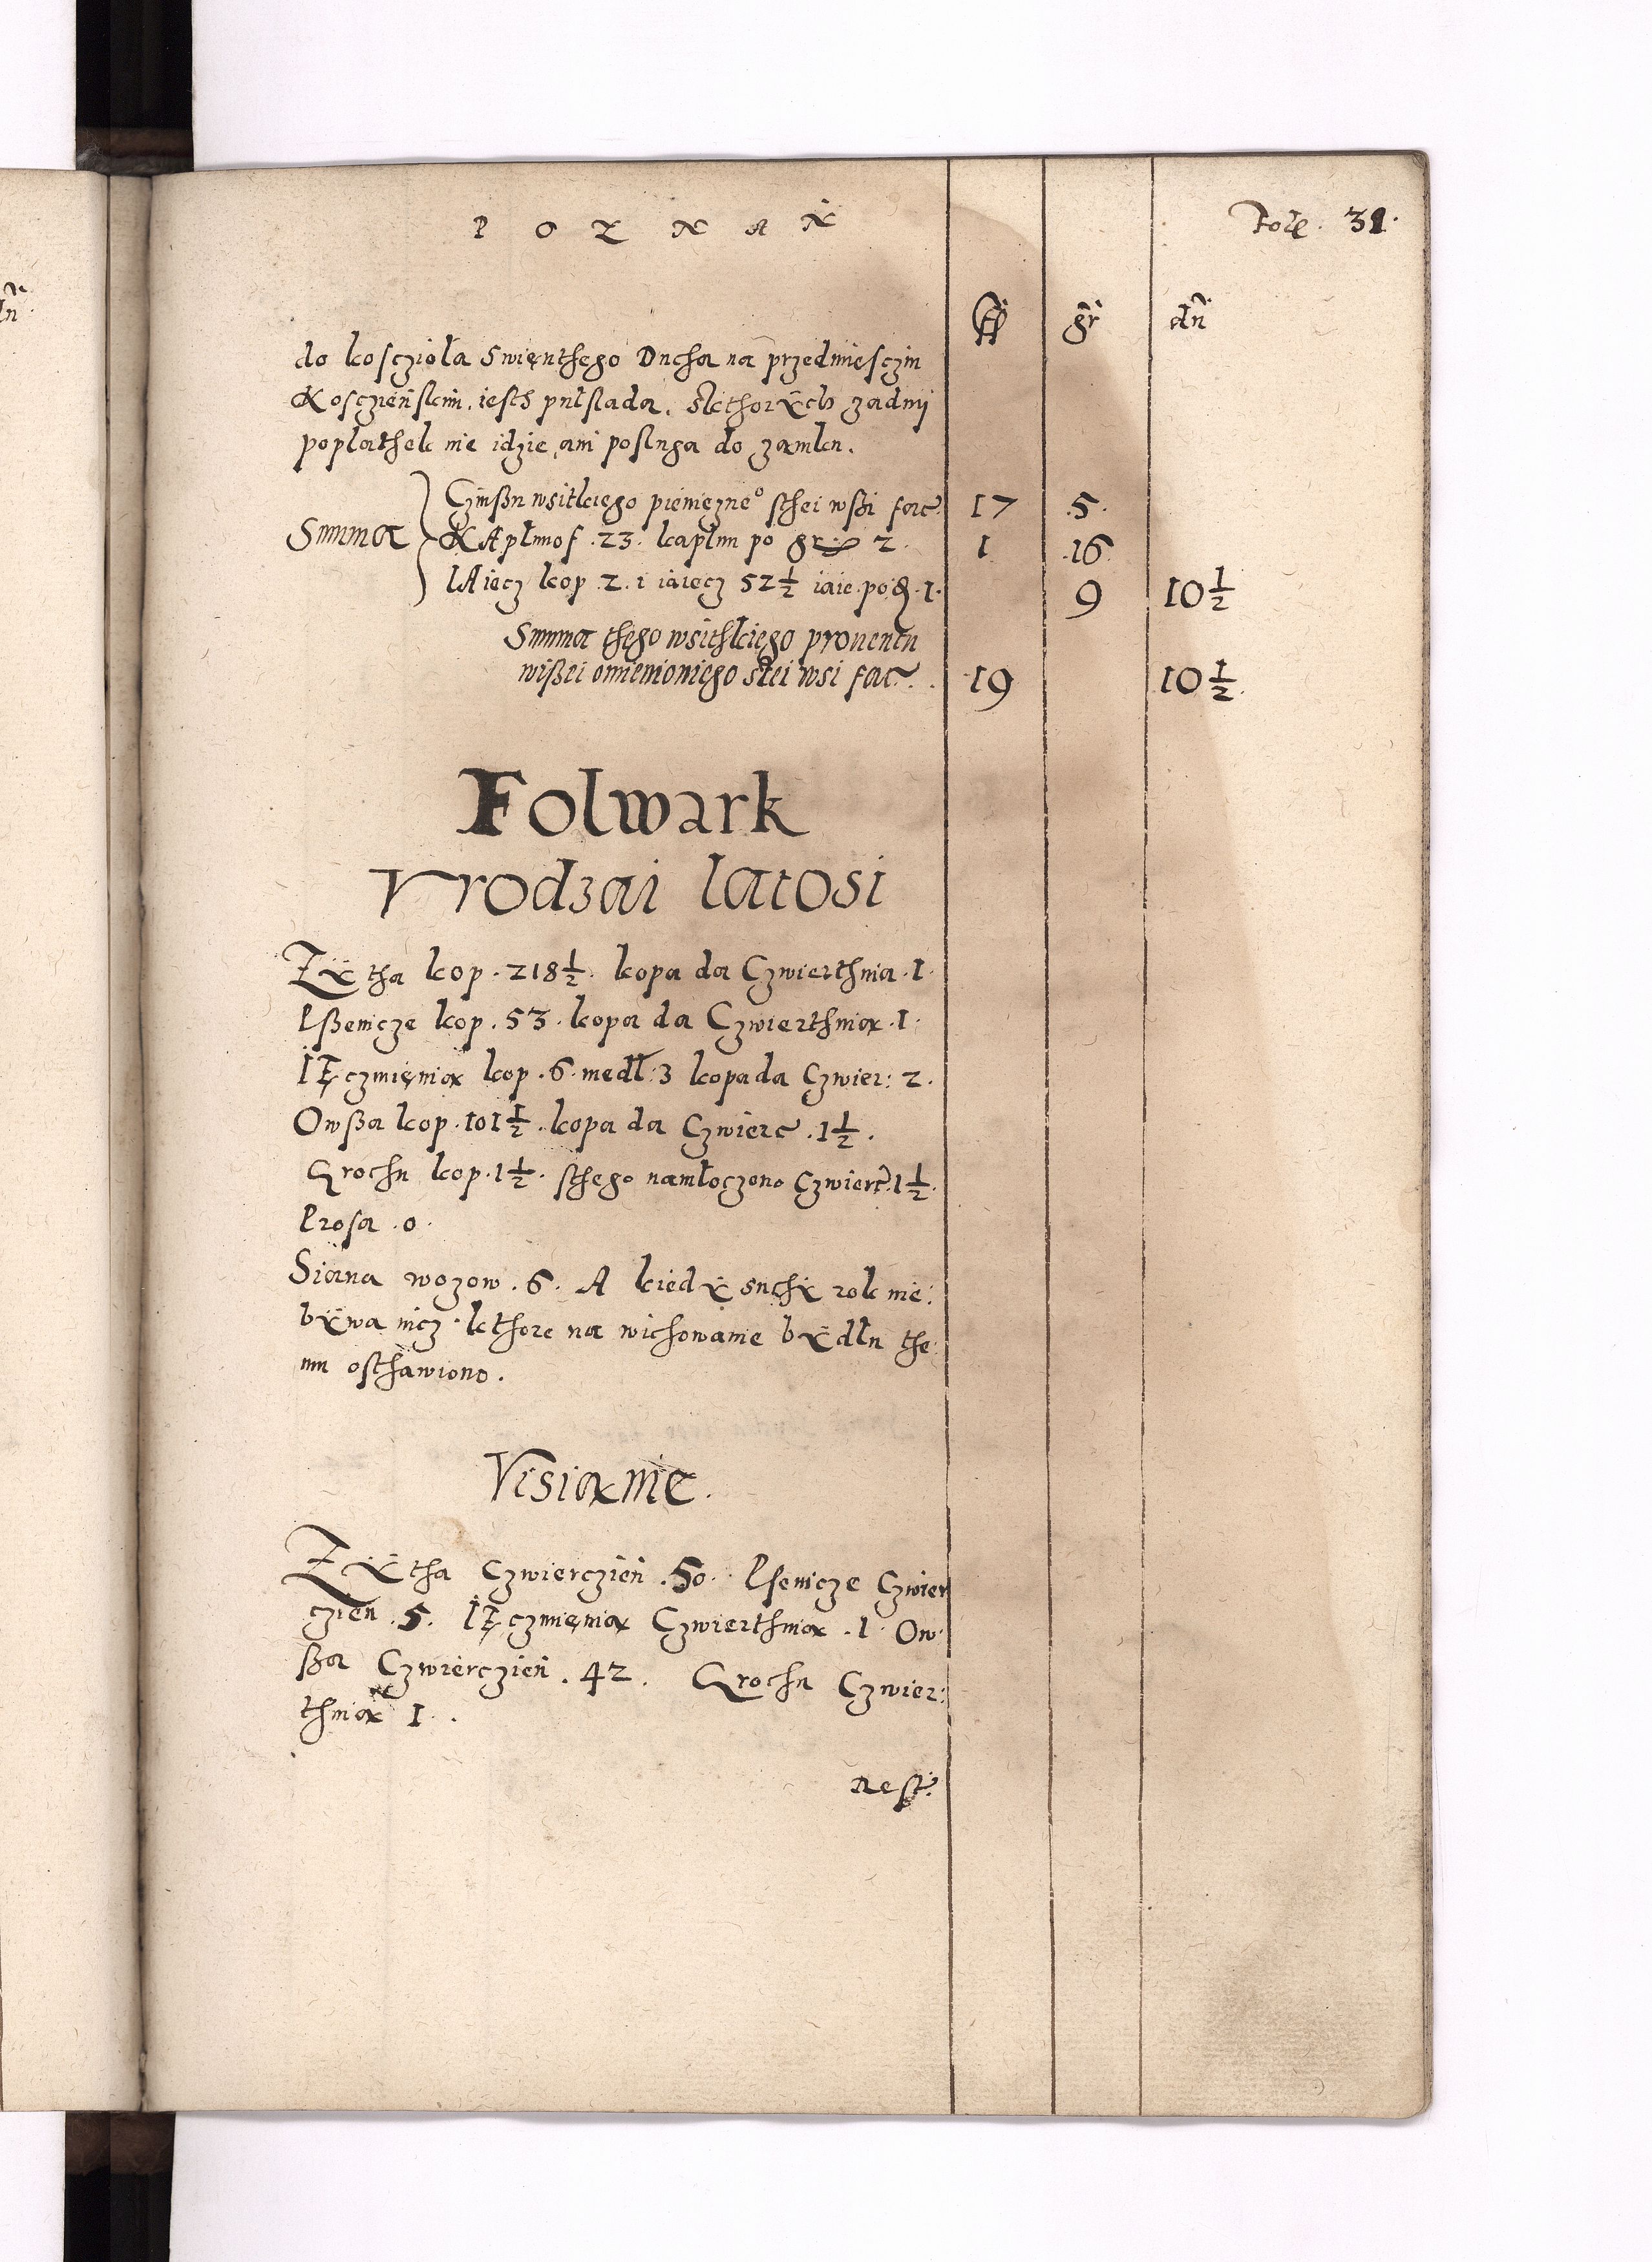 P O Z N A Ń
Folẹ. 31.
fł gr̃ dñ
do kosczioła swięnthego Ducha na przedmiescziu
Kosczieńskim, iesth pułślada, skthorÿch żadnÿ
popłathek nie idzie, ani posługa do zamku.
Summa
Czinßu wsitkiego pienięzne° sthei wßi fac̃ 17 5.
KApłunof .23. kapłun po gr 2. 1 .16
IAiecz kop .2. i iaiecz 52½ iaie po δ .1. 9 10½
Summa thego wsithkiego prouentu
wißei omienioniego stei wsi fac̃. 19 10½.
Folwark
Vrodzai latosi
Zÿtha kop .218½. kopa da Czwierthnia .1.
Pßenicze kop .53. kopa da Czwierthnią .1.
IĘczmięnią kop .6. medł: 3 kopa da Czwier: 2.
Owßa kop .101½. kopa da Czwierc .1½.
Grochu kop .1½. sthego namłoczono Czwierc̃ .1½.
Prosa .0.
Siana wozow .6. A kiedÿ suchÿ rok nie:
bÿwa nicz. kthore na wichowanie bÿdłu the:
mu osthawiono.
Visianie.
Zÿtha Czwierczień .50. Psenicze Czwier
czień .5. IĘczmięnią Czwierthnią .1. Ow:
ßa Czwierczień .42. Grochu Czwier:
thnią 1.
Rest: